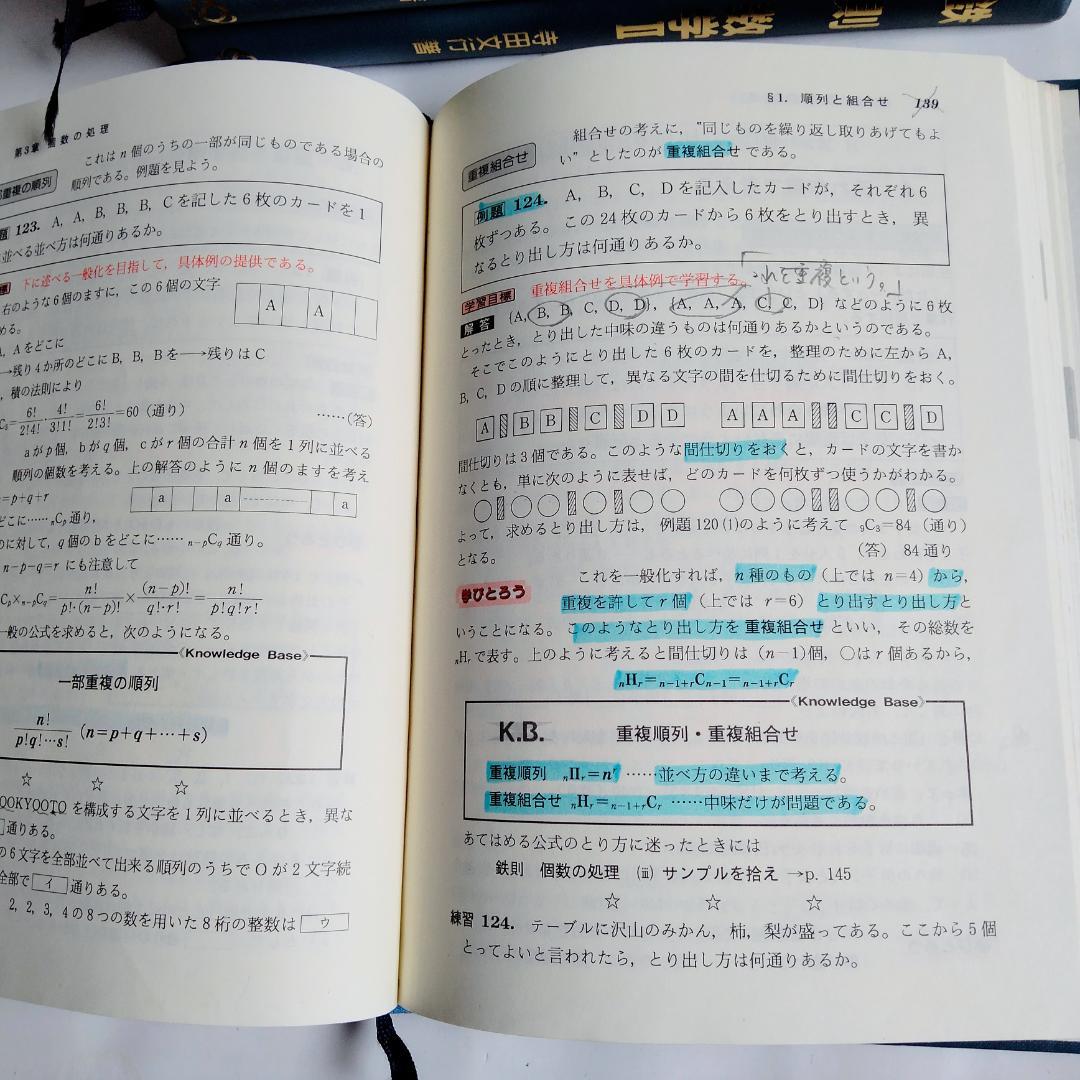 数学II 寺田文行著
則
第3章 個数の処理
これは n 個のうちの一部が同じものである場合の
順列である。例題を見よう。
重複の順列
123. A, A, B, B, B, C を記した6枚のカードを1
並べる並べ方は何通りあるか。
下に述べる一般化を目指して，具体例の提供である。
右のような6個のますに，この6個の文字
める。
A A
, A をどこに
→残り4か所のどこに B, B, B を→残りは C
，積の法則により
C₃=6!/2!4!・4!/3!1!=6!/2!3!=60（通り） ……(答)
a が p 個，b が q 個，c が r 個の合計 n 個を1列に並べる
順列の個数を考える。上の解答のように n 個のますを考え
=p+q+r
a a a
どこに…… nCp 通り，
のに対して，q 個の b をどこに…… n-pCq 通り。
n-p-q=r にも注意して
Cp×n-pCq=n!/p!・(n-p)!×(n-p)!/q!・r!=n!/p!q!r!
一般の公式を求めると，次のようになる。
《Knowledge Base》
一部重複の順列
n!/p!q!…s! (n=p+q+…+s)
☆ ☆ ☆
OOKYOOTO を構成する文字を1列に並べるとき，異な
通りある。
の6文字を全部並べて出来る順列のうちで O が2文字続
全部で イ 通りある。
2, 2, 3, 4の8つの数を用いた8桁の整数は ウ
§1. 順列と組合せ 139
重複組合せ
組合せの考えに，“同じものを繰り返し取りあげてもよ
い”としたのが重複組合せである。
例題 124. A, B, C, D を記入したカードが，それぞれ6
枚ずつある。この24枚のカードから6枚をとり出すとき，異
なるとり出し方は何通りあるか。
学習目標 重複組合せを具体例で学習する。
「これを重複という。」
解答 {A, B, B, C, D, D}, {A, A, A, C, C, D} などのように6枚
とったとき，とり出した中味の違うものは何通りあるかというのである。
そこでこのようにとり出した6枚のカードを，整理のために左から A,
B, C, D の順に整理して，異なる文字の間を仕切るために間仕切りをおく。
A B B C D D A A A C C D
間仕切りは3個である。このような間仕切りをおくと，カードの文字を書か
なくとも，単に次のように表せば，どのカードを何枚ずつ使うかがわかる。
よって，求めるとり出し方は，例題120(1)のように考えて ₉C₃=84（通り）
となる。 （答） 84通り
学びとろう これを一般化すれば，n 種のもの（上では n=4）から，
重複を許して r 個（上では r=6）とり出すとり出し方と
いうことになる。このようなとり出し方を重複組合せといい，その総数を
nHr で表す。上のように考えると間仕切りは (n−1)個，○は r 個あるから，
nHr=n-1+rCn-1=n-1+rCr
《Knowledge Base》
K.B. 重複順列・重複組合せ
重複順列 nΠr=nʳ ……並べ方の違いまで考える。
重複組合せ nHr=n-1+rCr ……中味だけが問題である。
あてはめる公式のとり方に迷ったときには
鉄則 個数の処理 (iii) サンプルを拾え →p. 145
☆ ☆ ☆
練習 124. テーブルに沢山のみかん，柿，梨が盛ってある。ここから5個
とってよいと言われたら，とり出し方は何通りあるか。